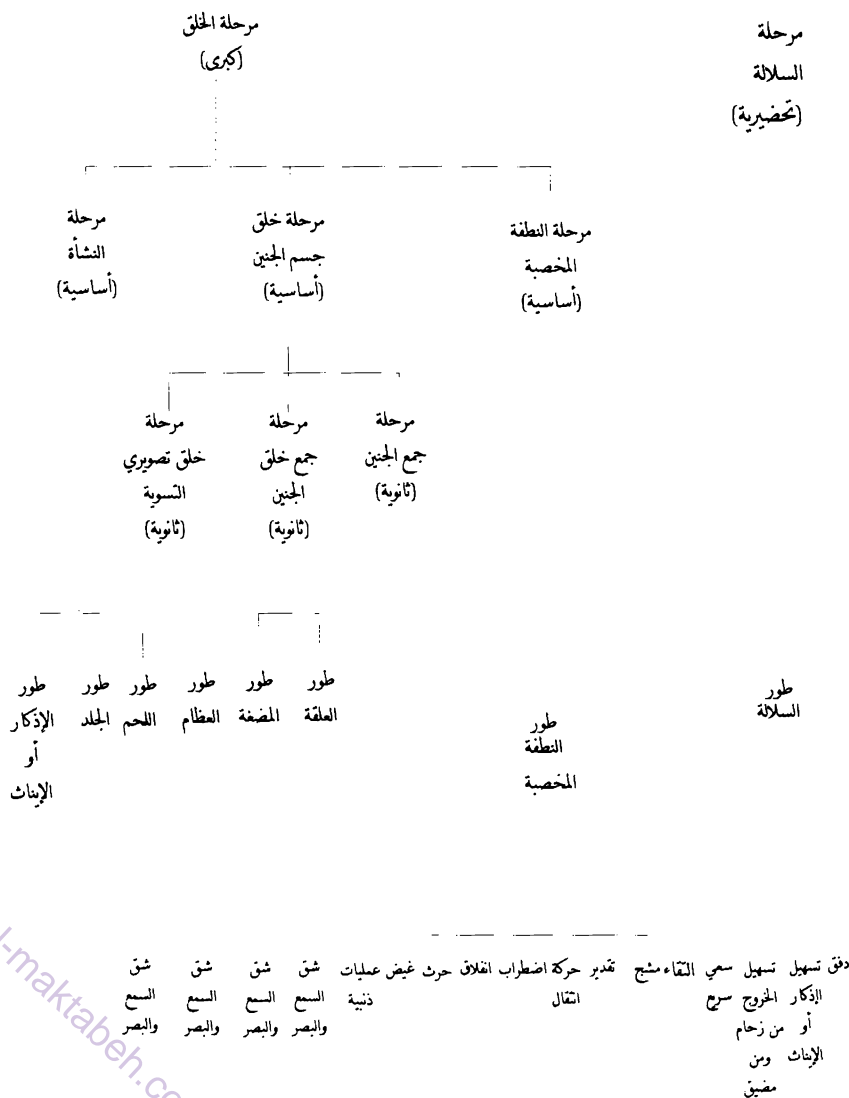 مرحلة
السلالة
(تحضيرية)
مرحلة الخلق
(كبرى)
مرحلة النطفة
المخصبة
(أساسية)
مرحلة خلق
جسم الجنين
(أساسية)
مرحلة
النشأة
(أساسية)
مرحلة
جمع الجنين
(ثانوية)
مرحلة
جمع خلق
الجنين
(ثانوية)
مرحلة
خلق تصويري
التسوية
(ثانوية)
طور
السلالة
طور
النطفة
المخصبة
طور
العلقة
طور
المضغة
طور
العظام
طور
اللحم
طور
الجلد
طور
الإذكار
أو
الإيناث
دفق
تسهيل
الإذكار
أو
الإيناث
تسهيل
الخروج
من زحام
ومن
مضيق
سعي
سريع
التقاء
مشج
تقدير
حركة
انتقال
اضطراب
انفلاق
حرث
غيض
عمليات
ذنبية
شق
السمع
والبصر
شق
السمع
والبصر
شق
السمع
والبصر
شق
السمع
والبصر
l-maktabeh.co